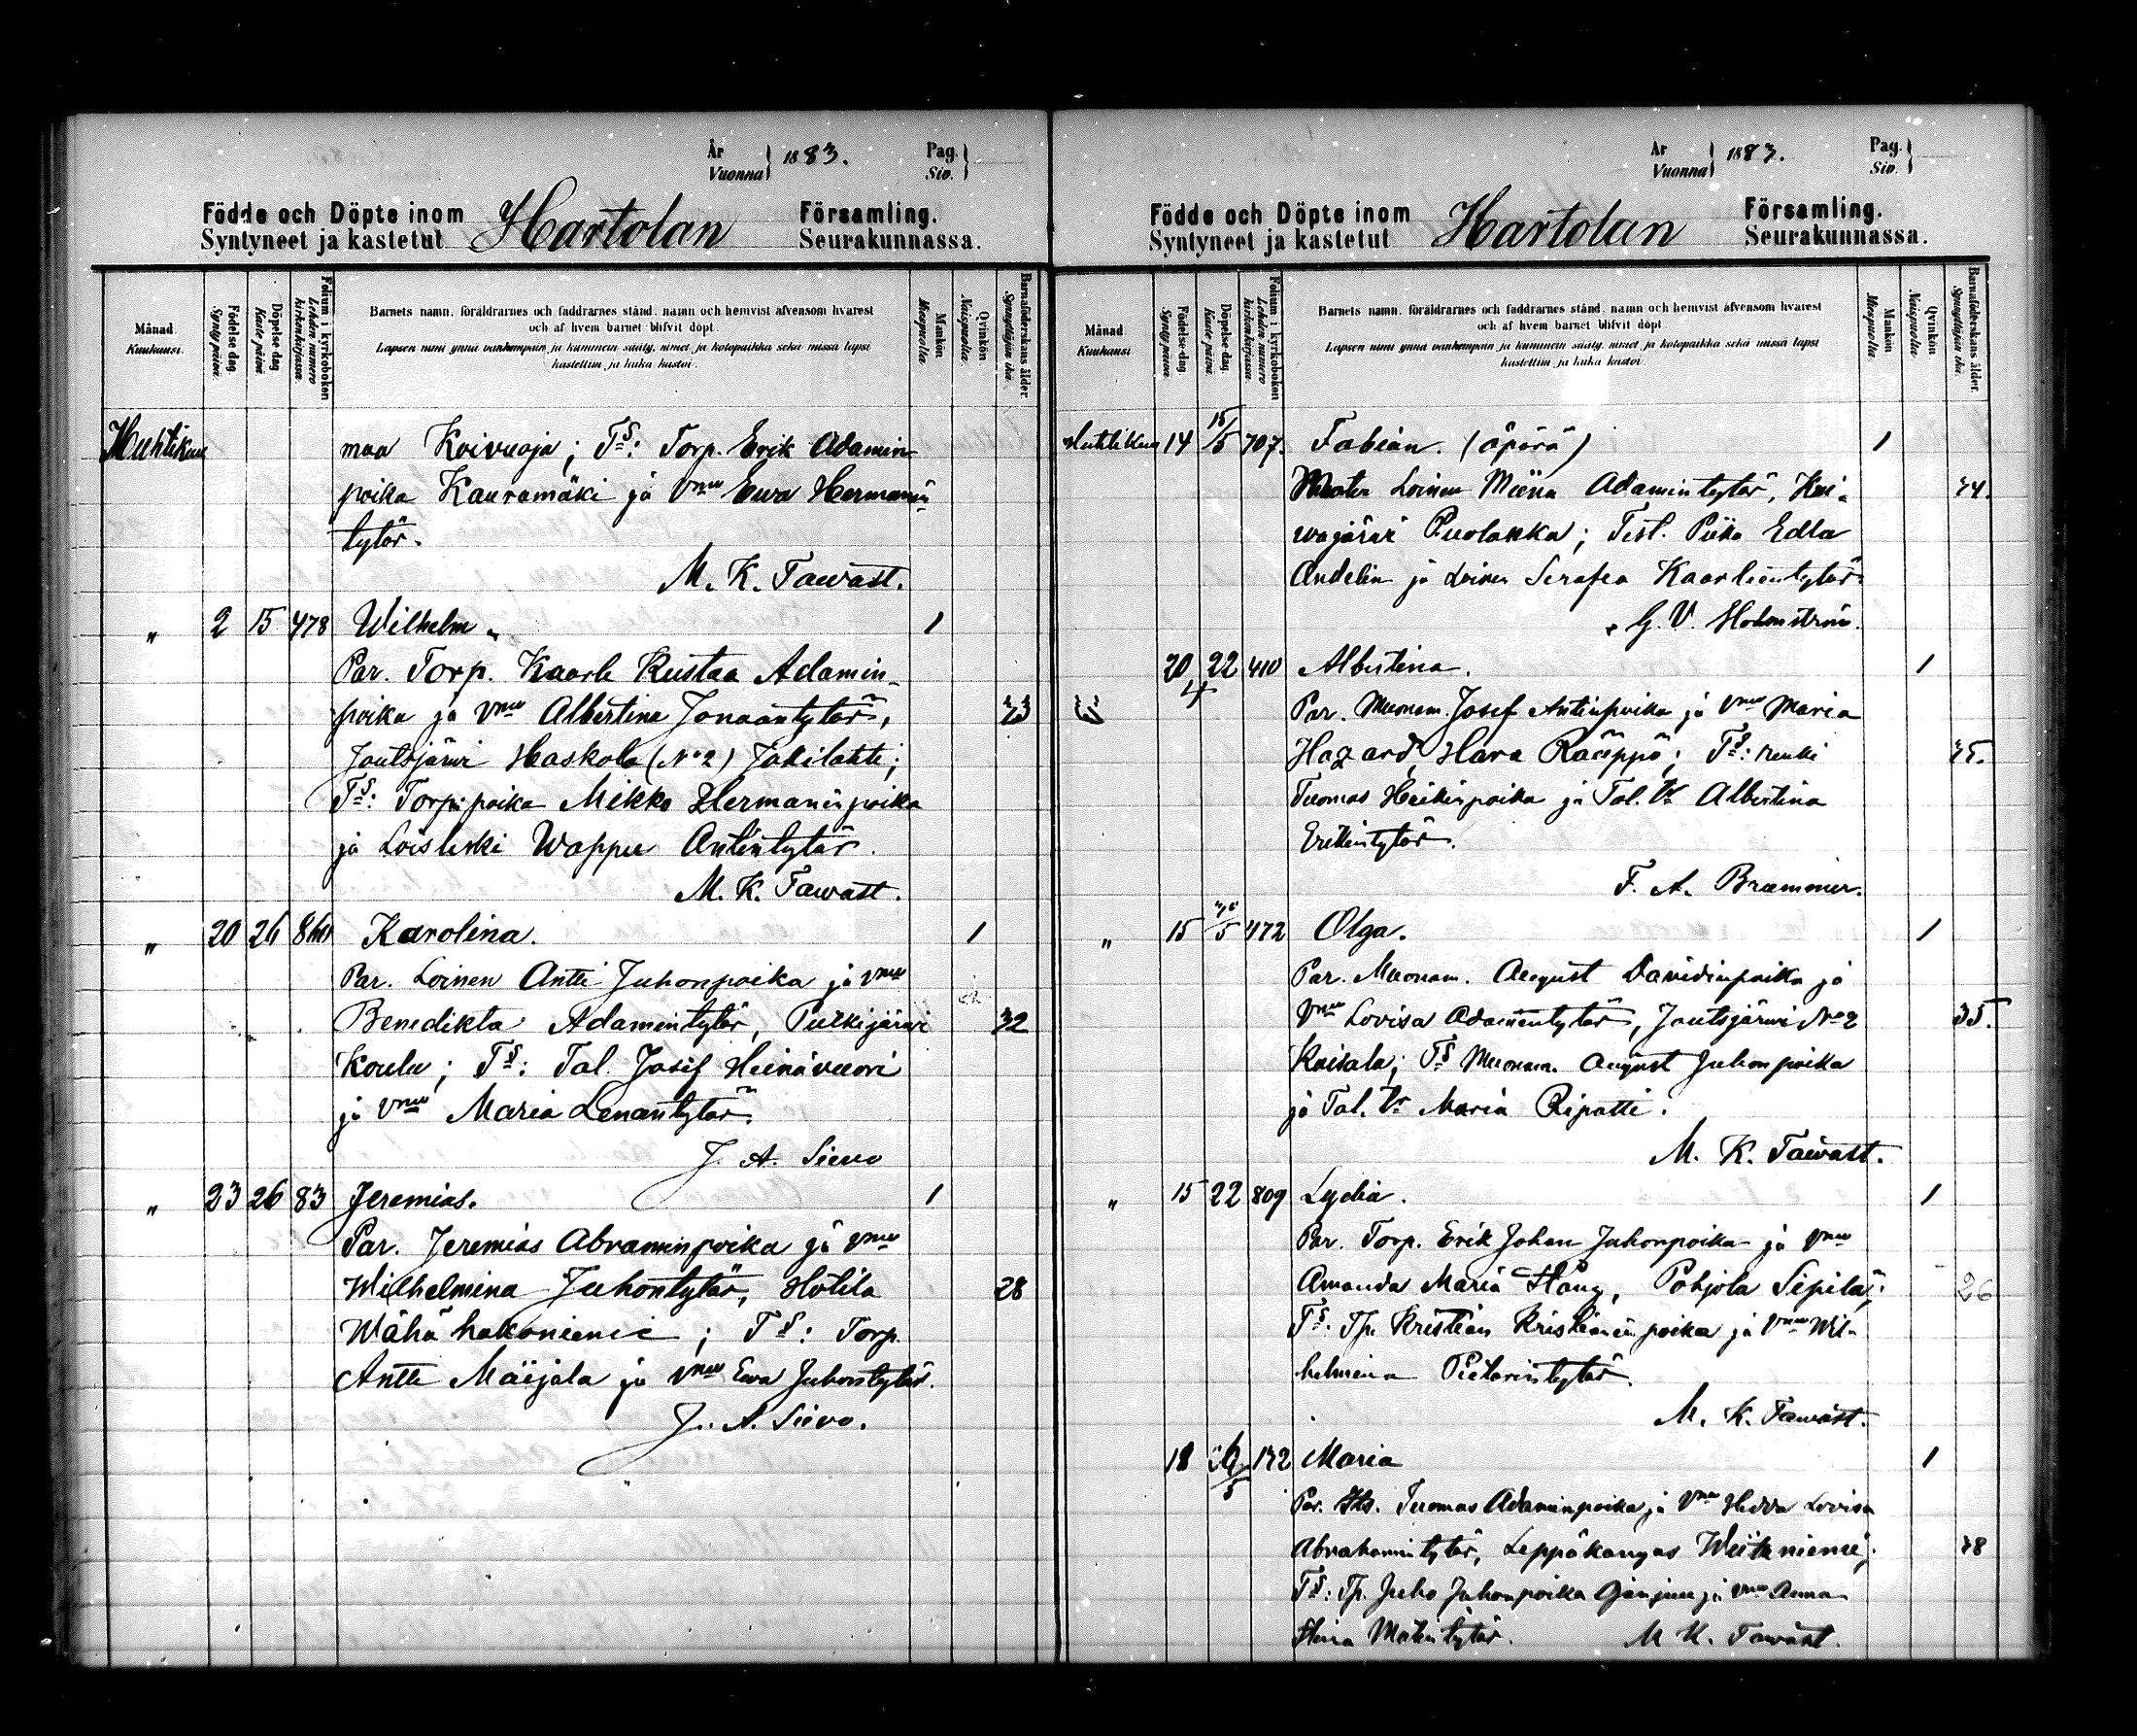 År
Vuonna } 1883.
Pag.
Siv. }
Födde och Döpte inom
Syntyneet ja kastetut
Hartolan
Församling.
Seurakunnassa.
Månad.
Kuukausi.
Födelse dag.
Synty päivä.
Döpelse dag
Kaste päivä
Folium i kyrkoboken
Lehden numero
kirkonkirjassa.
Barnets namn, föräldrarnes och faddrarnes stånd, namn och hemvist äfvensom hvarest
och af hvem barnet blifvit döpt.
Lapsen nimi ynnä vanhempain ja kummein sääty, nimet ja kotopaikka sekä missä lapsi
kastettiin ja kuka kastoi.
Mankön
Miespuolta.
Qvinkön.
Naispuolta.
Barnaföderskans ålder.
Synnyttäjän ikä.
Huhtikuu maa Koivuoja; T§: Torp. Erik Adamin-
poika Kauramäki ja Vmo Ewa Hermanin-
tytär.
M. K. Tawast.
" 2 15 478 Wilhelm. 1
Par. Torp. Kaarle Kustaa Adamin-
poika ja Vmo Albertina Jonaantytär, 23
Joutsjärwi Haskola (No 2) Jokilahti;
T§: Torp: poika Mikko Hermaninpoika
ja Loisleski Wappu Antintytär.
M. K. Tawast.
" 20 26 Karolina. 1
Par. Loinen Antti Juhonpoika ja Vmo
Benedikta Adamintytär, Putkijärwi 32
Koulu; T§: Tal. Josef Heinävuori
ja Vmo Maria Lenantytär.
J. A. Siewo
" 23 26 83 Jeremias. 1
Par. Jeremias Abraminpoika ja Vmo
Wilhelmina Juhontytär, Hotila 28
Wähä hakoniemi; T§: Torp.
Antti Maijala ja Vmo Ewa Juhontytär.
J. A. Siewo.
År
Vuonna } 1883.
Pag.
Siv. }
Födde och Döpte inom
Syntyneet ja kastetut
Hartolan
Församling.
Seurakunnassa.
Månad
Kuukausi
Födelse dag.
Synty päivä
Döpelse dag
Kaste päivä.
Folium i kyrkoboken
Lehden numero
kirkonkirjassa.
Barnets namn, föräldrarnes och faddrarnes stånd, namn och hemvist äfvensom hvarest
och af hvem barnet blifvit döpt
Lapsen nimi ynnä vanhempain ja kummein sääty, nimet ja kotopaikka sekä missä lapsi
kastettiin ja kuka kastoi
Mankön
Miespuolta
Qvinkön
Naispuolta.
Barnaföderskans ålder.
Synnyttäjän ikä.
Huhtikuu 14 15/5 707. Fabian. (äpärä) 1
Mater Loinen Miina Adamintytär, Kui-
wajärwi Puolakka; Test. Piika Edla
Andelin ja Loinen Serafia Kaarlentytär
G. V. Holmström.
20/4 22 410 Albertina. 1
Par. Muonam. Josef Antinpoika ja Vmo Maria
Hazard, Hara Rääppö; T§: renki
Tuomas Heikinpoika ja Tal. tr Albertina
Erikintytär.
F. A. Brummer.
" 15 472 Olga. 1
Par. Muonam. August Davidinpoika ja
Vmo Lovisa Adamintytär, Joutsjärwi No 2 35.
Koisala; T§ Muonam. August Juhonpoika
ja Tal. tr Maria Ripatti.
M. K. Tawast.
" 15 22 809 Lydia. 1
Par. Torp. Erik Johan Juhonpoika ja Vmo
Amanda Maria Haug, Pohjola Sipilä; 26
T§: Tp. Kristian Kristianinpoika ja Vmo Wil-
helmina Pietarintytär.
M. K. Tawast.
18 172 Maria 1
Par. Its. Tuomas Adaminpoika ja Vmo Hedda Lovisa
Abrahamintytär, Leppäkangas Weitiniemi;
T§: Tp. Juho Juhonpoika Ojanjuu ja Vmo Anna
Stina Matintytär. M. K. Tawast.